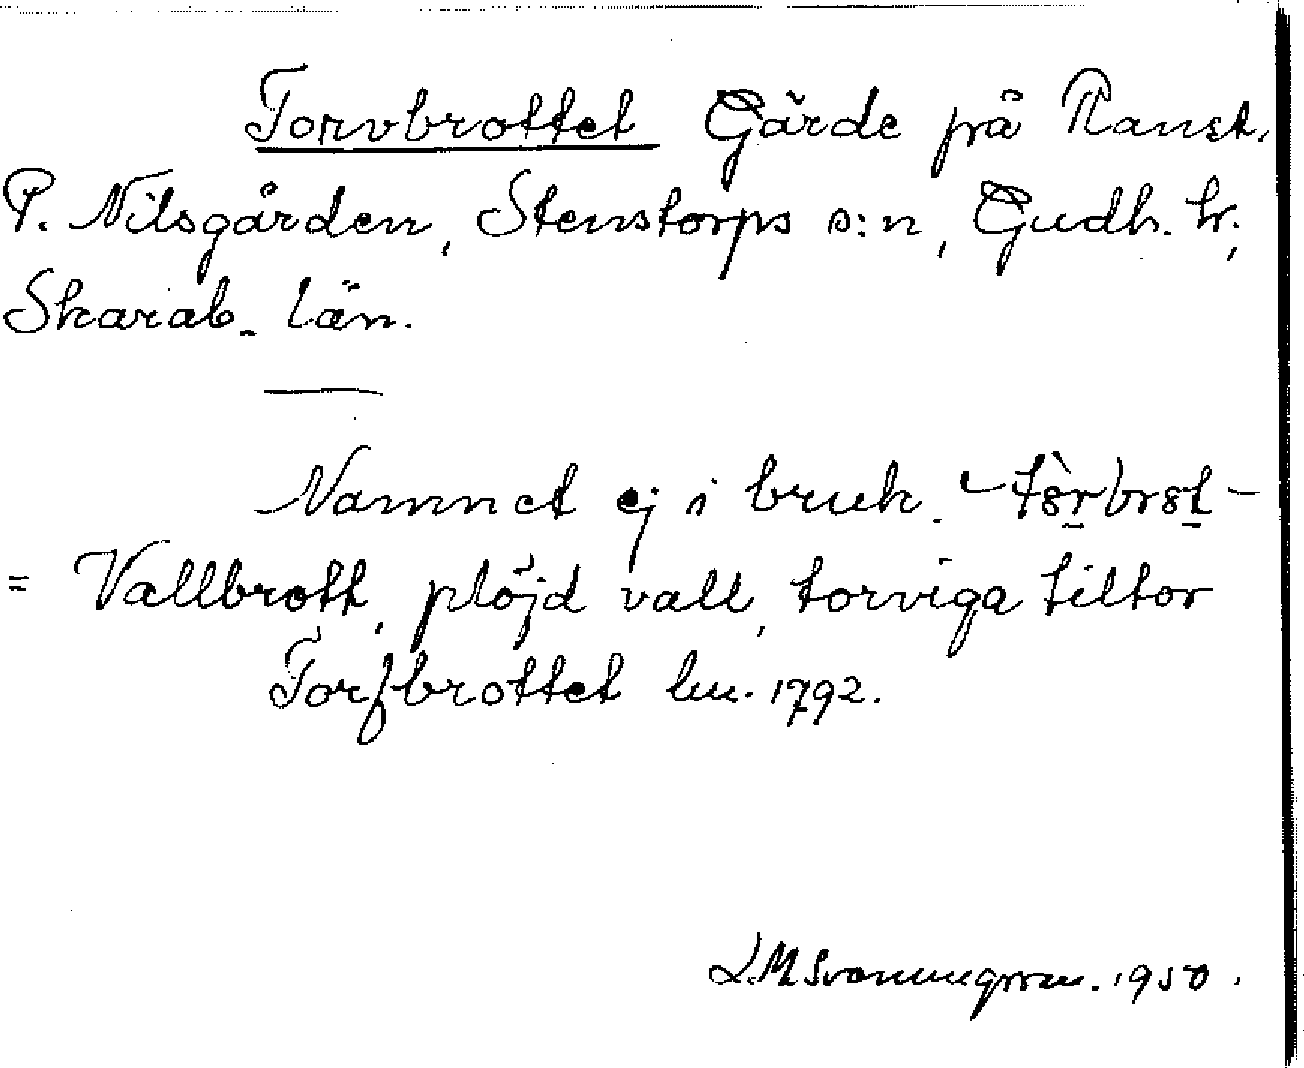 Torvbrottet Gärde på Ranst.
P. Nilsgården, Stenstorps s:n, Gudh. hr.,
Skarab. län.
Namnet ej i bruk.
= Vallbrott, plöjd vall, torviga tiltor
Torfbrottet lm. 1792.
1950.